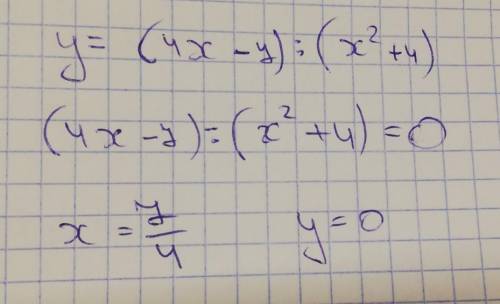 y = (4x - 7) : (x² + 4)
(4x - 7) : (x² + 4) = 0
x = 7/4 y = 0